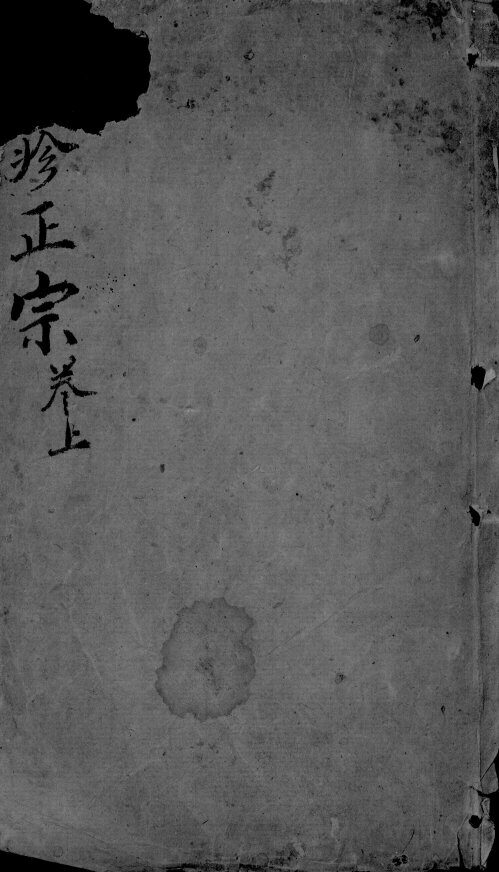 疹正宗卷上